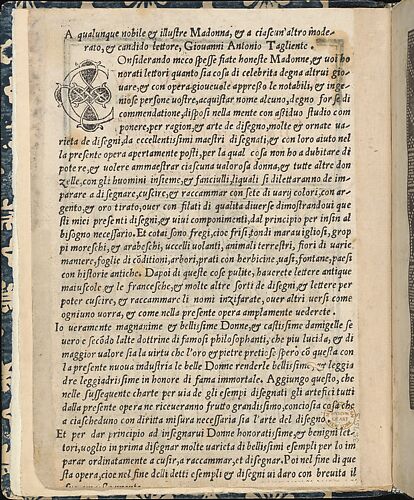 A qualunque nobile & illustre Madonna, & a ciascun'altro mode-
rato, & candido lettore, Giouanni Antonio Tagliente.
COnsiderando meco spesse fiate honeste Madonne, & uoi ho
norati lettori quanto sia cosa di celebrita degna altrui gio-
uare, & con opera gioueuole appresso le notabili, & inge-
niose persone uostre, acquistar nome alcuno, degno forse di
commendatione, disposi nella mente con assiduo studio com
ponere, per ragion, & arte di disegno, molte & ornate ua-
rieta di disegni, da eccellentissimi maestri disegnati, & con loro aiuto nel
la presente opera apertamente posti, per la qual cosa non ho a dubitare di
potere, & uolere ammaestrar ciascuna ualorosa donna, & tutte altre don
zelle, con gli huomini insieme, & fanciulli, liquali si dilettaranno de im-
parare a disegnare, cusire, & raccammar con sete di uarij colori, con ar-
gento, & oro tirato, ouer con filati di qualita diuerse dimostrandoui que
sti miei presenti disegni, & uiui componimenti, dal principio per insin al
bisogno necessario. Et cotai sono fregi, cioe frisi, tondi marauigliosi, grop
pi moreschi, & arabeschi, uccelli uolanti, animali terrestri, fiori di uarie
maniere, foglie di cōditioni, arbori, prati con herbicine, uasi, fontane, paesi
con historie antiche. Dapoi di queste cose pulite, hauerete lettere antique
maiuscole & le francesche, & molte altre sorti de disegni, & lettere per
poter cusire, & raccammar li nomi inzifarate, ouer altri uersi come
ogniuno uorra, & come nella presente opera amplamente uederete.
Io ueramente magnanime & bellissime Donne, & castissime damigelle se
uero e secōdo lalte dottrine di famosi philosophanti, che piu lucida, & di
maggior ualore sia la uirtu che l'oro & pietre pretiose spero cō questa con
la presente nuoua industria le belle Donne renderle bellissime, & leggia
dre leggiadrissime in honore di fama immortale. Aggiungo questo, che
nelle sussequente charte per uia de gli esempi disegnati gli artefici tutti
dalla presente opera ne riceueranno frutto grandissimo, conciosia cosa che
a ciascheduno con diritta misura necessaria sia l'arte del disegno.
Et per dar principio ad insegnarui Donne honoratissime, & benigni let-
tori, uoglio in prima disegnar molte uarieta di bellissimi esempli per lo im
parar ordinatamente a cusir, a raccammar, et disegnar. Poi nel fine di que
sta opera, cioe nel fine delli detti esempli & disegni ui daro con breuita il